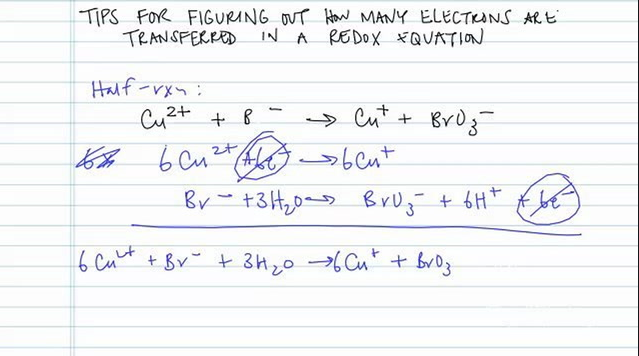 TIPS FOR FIGURING OUT HOW MANY ELECTRONS ARE
TRANSFERRED IN A REDOX EQUATION
Half-rxn:
Cu²⁺ + B ⁻ → Cu⁺ + BrO₃⁻
6Cu²⁺ +6e⁻ → 6Cu⁺
Br⁻ + 3H₂O → BrO₃⁻ + 6H⁺ + 6e⁻
6Cu²⁺ + Br⁻ + 3H₂O → 6Cu⁺ + BrO₃